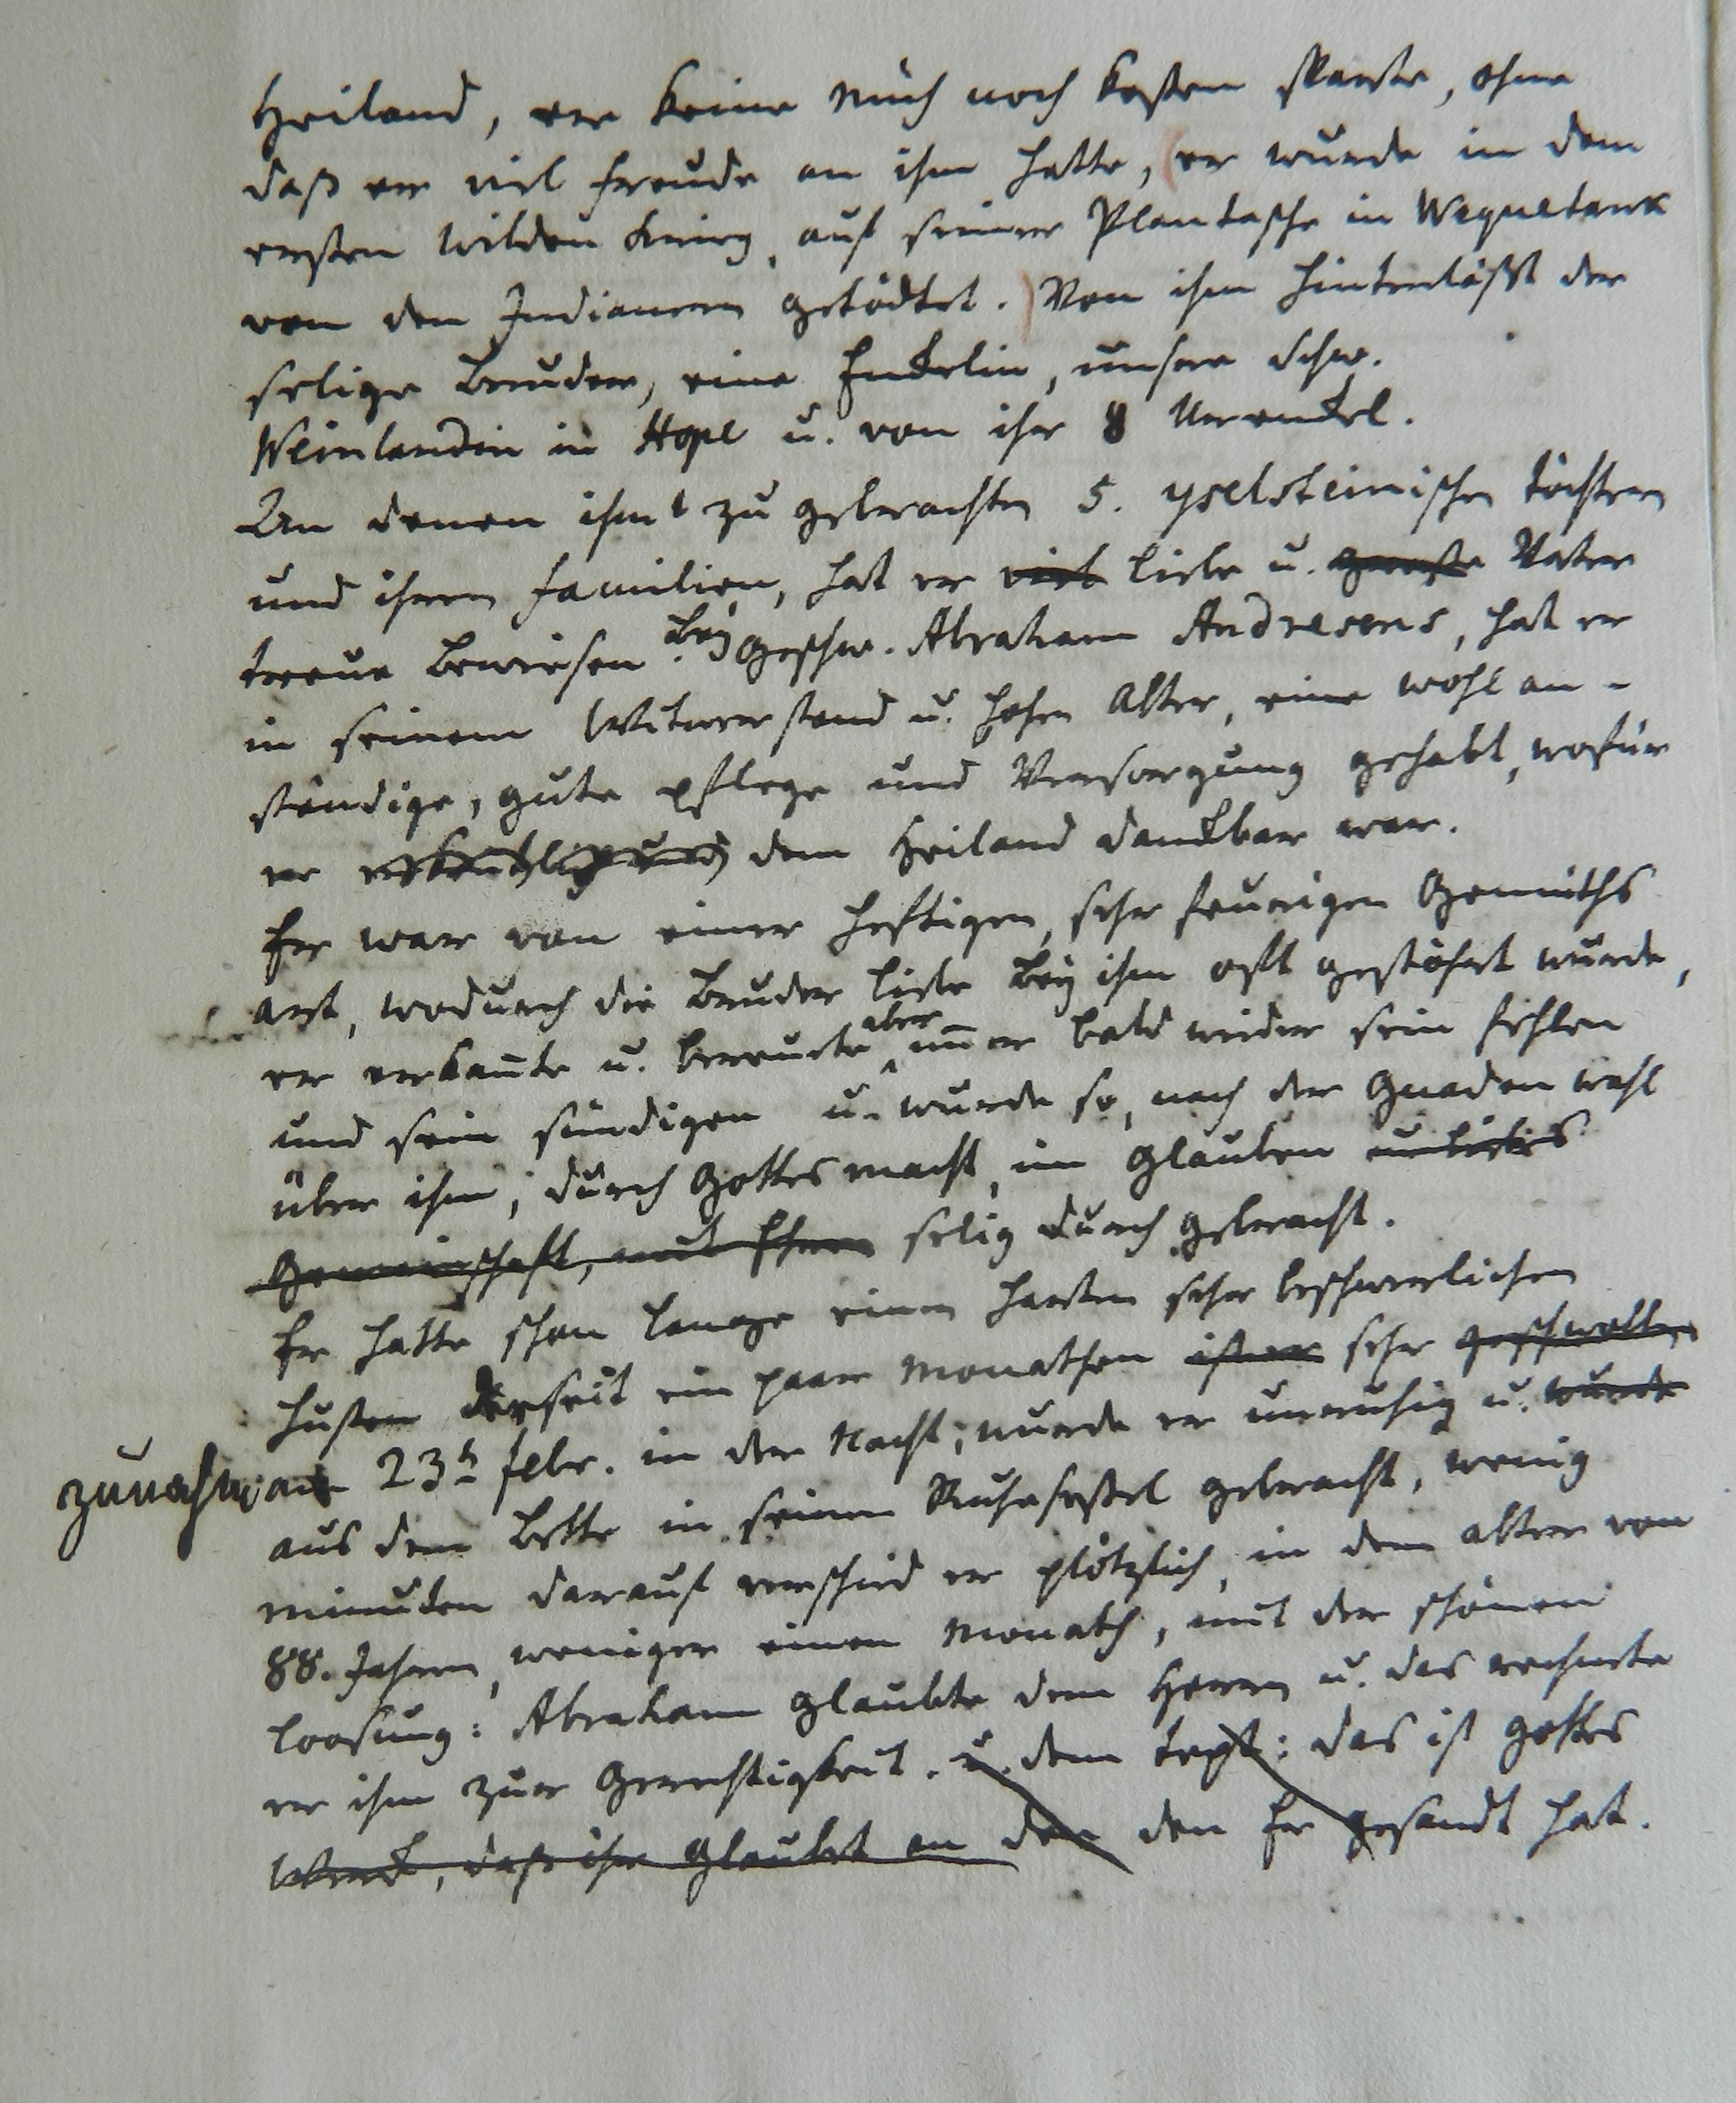 Heiland, der keine Müh noch Kosten sparte, ohne
daß er viel Freude an ihm hatte, er wurde in dem
ersten wilden Krieg, auf seiner Plantasche in Wequetank
von den Indianern getödtet. Von ihm hinterläßt der
selige Bruder, eine Enckelin, unsere Schw.
Weinlandin in Hope u. von ihr 8 Urenckel.
An denen ihm zu gebrachten 5. yselsteinischen Töchtern
und ihren Familien, hat er viel Liebe u. Vater
treue bewiesen. Bey Geschw. Abraham Andresens, hat er
in seinem Witwerstand u. hohen Alter, eine wohl an-
ständige, gute pflege und Versorgung gehabt, wofür
er dem Heiland danckbar war.
Er war von einer heftigen, sehr feurigen Gemüths
art, wodurch die Bruder Liebe bey ihm oft gestöhrt wurde,
er erkan̄te u. bereute aber im̄er bald wieder sein fehlen
und sein sündigen u. wurde so, nach der Gnaden wahl
über ihm, durch Gottes macht, im Glauben
Gemeinschaft, mit Ihm selig durch gebracht.
Er hatte schon lange einen harten sehr beschwerlichen
Husten der seit ein paar Monathen sehr geschwollen
zunahm, am 23t Febr. in der Nacht, wurde er unruhig u. wurde
aus dem Bette in seinen Ruhesessel gebracht, wenig
minuten darauf verschied er plötzlich, in dem alter von
88. Jahren, weniger einen Monath, mit der schönen
Loosung: Abraham glaubte dem Herrn u. das rechnete
er ihm zur Gerechtigkeit. u. dem Text: das ist Gottes
Werck, daß ihr glaubet an den den Er gesandt hat.